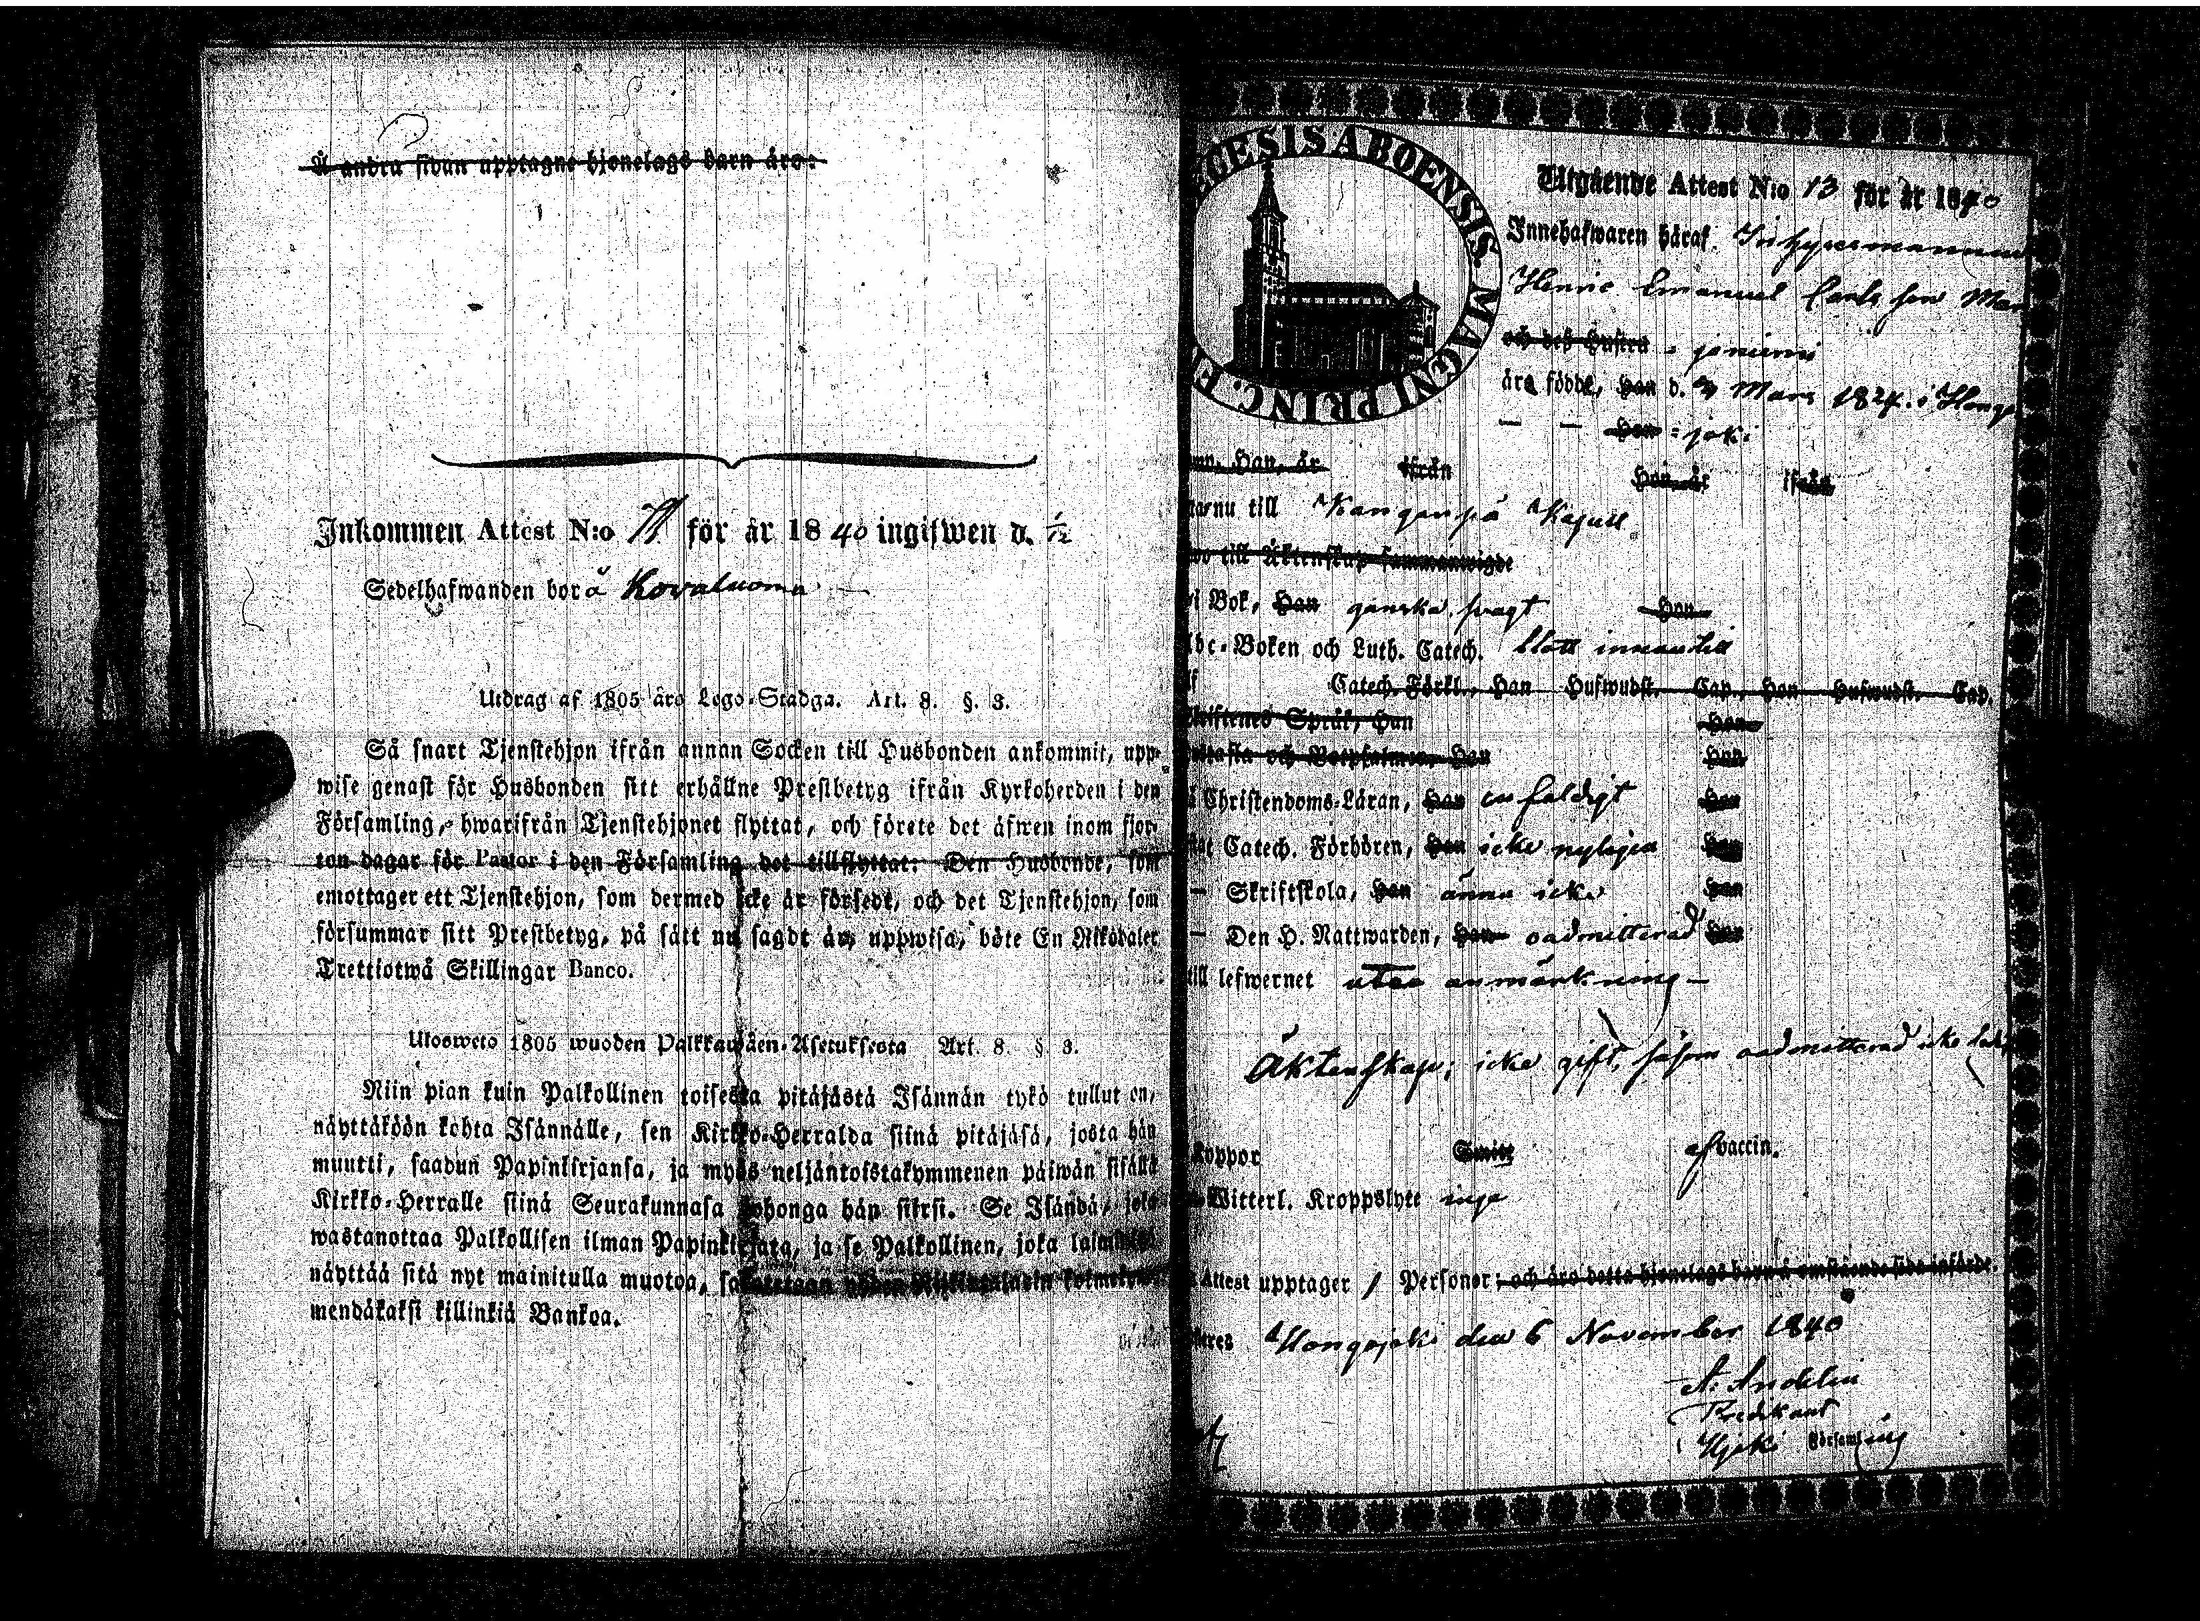 Å andra sidan upptagne hjonelags barn äro:
Inkommen Attest N:o för år 1840 ingifwen d. 1/12
Sedelhafwanden bor å Kovaluoma
Utdrag af 1805 års Lego-Stadga. Art. 8. §. 3.
Så snart Tjenstehjon ifrån annan Socken till Husbonden ankommit, upp-
wise genast för Husbonden sitt erhållne Prestbetyg ifrån Kyrkoherden i den
Församling, hwarifrån Tjenstehjonet flyttat, och förete det äfwen inom fjor-
ton dagar för Pastor i den Församling det tillflyttat: Den Husbonde, som
emottager ett Tjenstehjon, som dermed icke är försedt, och det Tjenstehjon, som
försummar sitt Prestbetyg, på sätt nu sagdt är, uppwisa, böte En Riksdaler
Trettiotwå Skillingar Banco.
Ulosweto 1805 wuoden Palkkawäen-Asetuksesta Art. 8. §. 3.
Niin pian kuin Palkollinen toisesta pitäjästä Isännän tykö tullut on,
näyttäköön kohta Isännälle, sen Kirkko-Herralda siinä pitäjäsä, josta hän
muutti, saadun Papinkirjansa, ja myös neljäntoistakymmenen päiwän sisällä
Kirkko-Herralle siinä Seurakunnasa johonga hän siirsi. Se Isändä, joka
wastanottaa Palkollisen ilman Papinkirjata, ja se Palkollinen, joka
näyttää sitä nyt mainitulla muotoa,
mendäkaksi killinkiä Bankoa.
EGESIS ABOENSIS MAGNI PRINC. F
Utgående Attest N:o 13 för år 1840
Innehafwaren häraf
Henric Emanuel Carlsson Man
och des Hustru = joniemi
äro födde, han d. Mars 1824. i Hongo
— — hon = joki
han, är ifrån hon, är ifrån
nu till Kanganpä Kapell
till Äktenskap sammanwigde
i Bok, han ganska swagt hon
Abc-Boken och Luth. Catech. blott innantill
Catech. Förkl., han Hufwudst. Cap., hon Hufwudst. Cap.
Skriftenes Språk, han hon
och Botpsalmer, han hon
Christendoms-Läran, han enfaldigt hon
Catech. Förhören, han icke nyligen hon
— Skriftskola, han ännu icke hon
— Den H. Nattwarden, han oadmitterad hon
till lefwernet utan anmärkning —
Äktenskap; icke gift, såsom oadmitterad icke
koppor Smitt af vaccin.
Witterl. Kroppslyte inga
Attest upptager 1 Personer; och äro detta hjonelags barn å omstående sida införde.
Hongojoki den 6 November 1840
A: Andelin
Predikant
Hjoki Församling